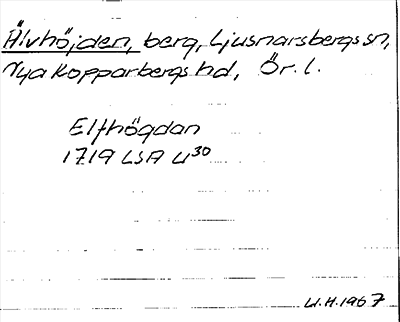 Älvhöjden, berg, Ljusnarsbergs sn,
Nya Kopparbergs hd, Ör. l.
Elfhögdan
1719 LSA U30
U.H. 1967